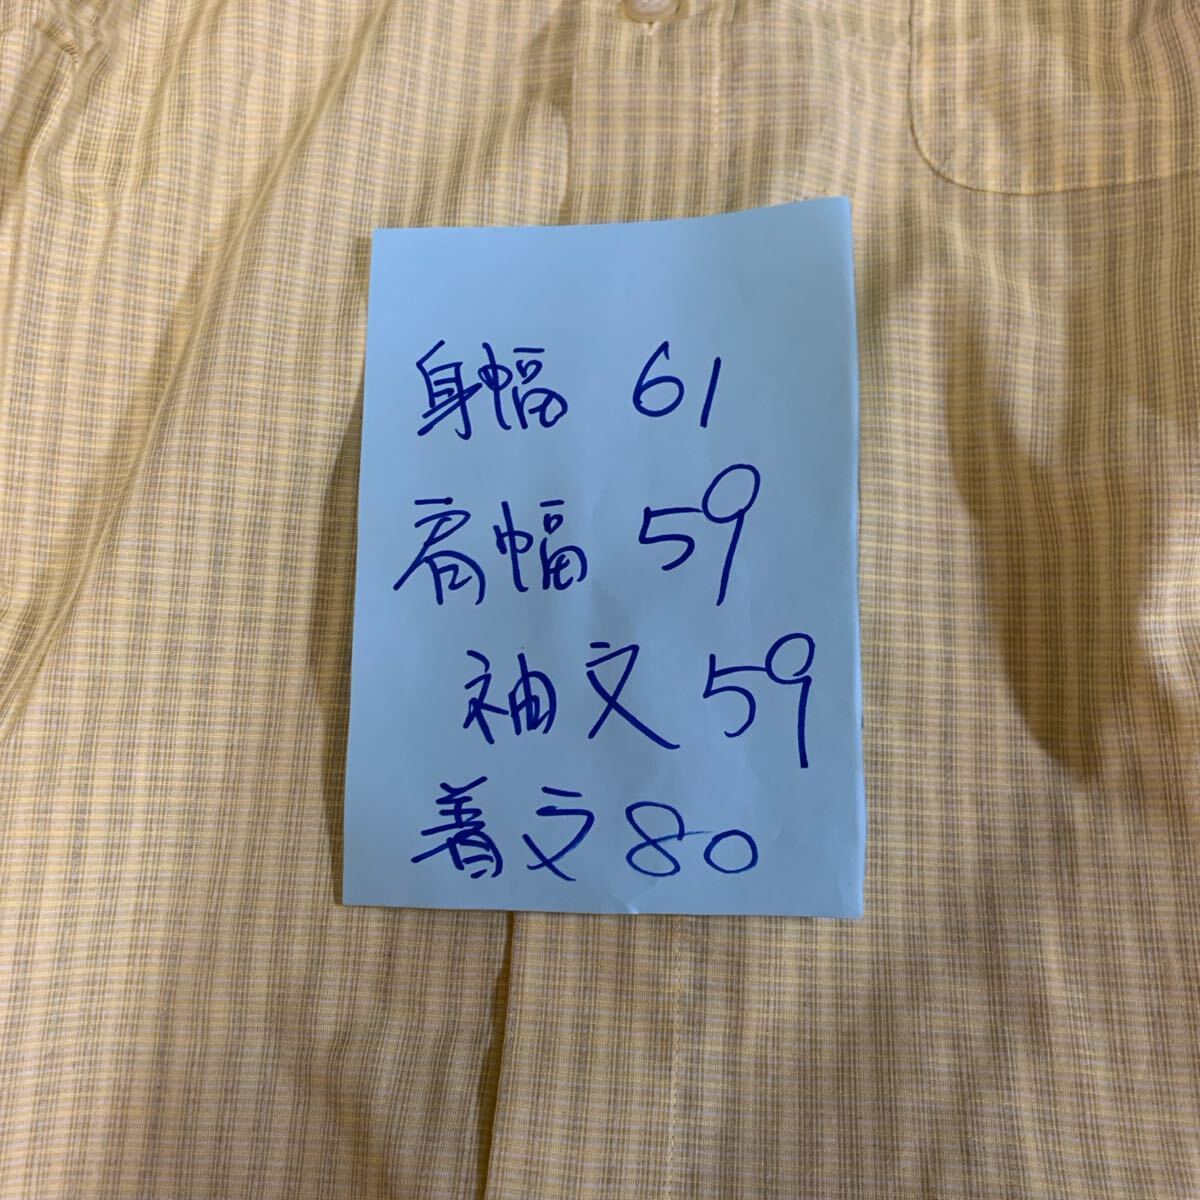 身幅 61
肩幅 59
袖文 59
着文 80